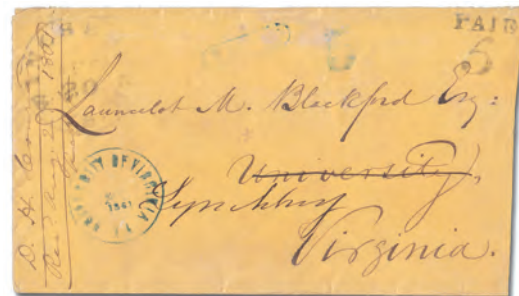 PAID
5
Launcelot M. Blackford Esq:
University,
Lynchbg
Virginia.
UNIVERSITY OF VIRGINIA
1861
D. H.
Rec'd Aug. 20 1861